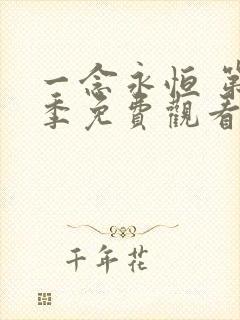 一念永恒 第
季免費觀看
千年花